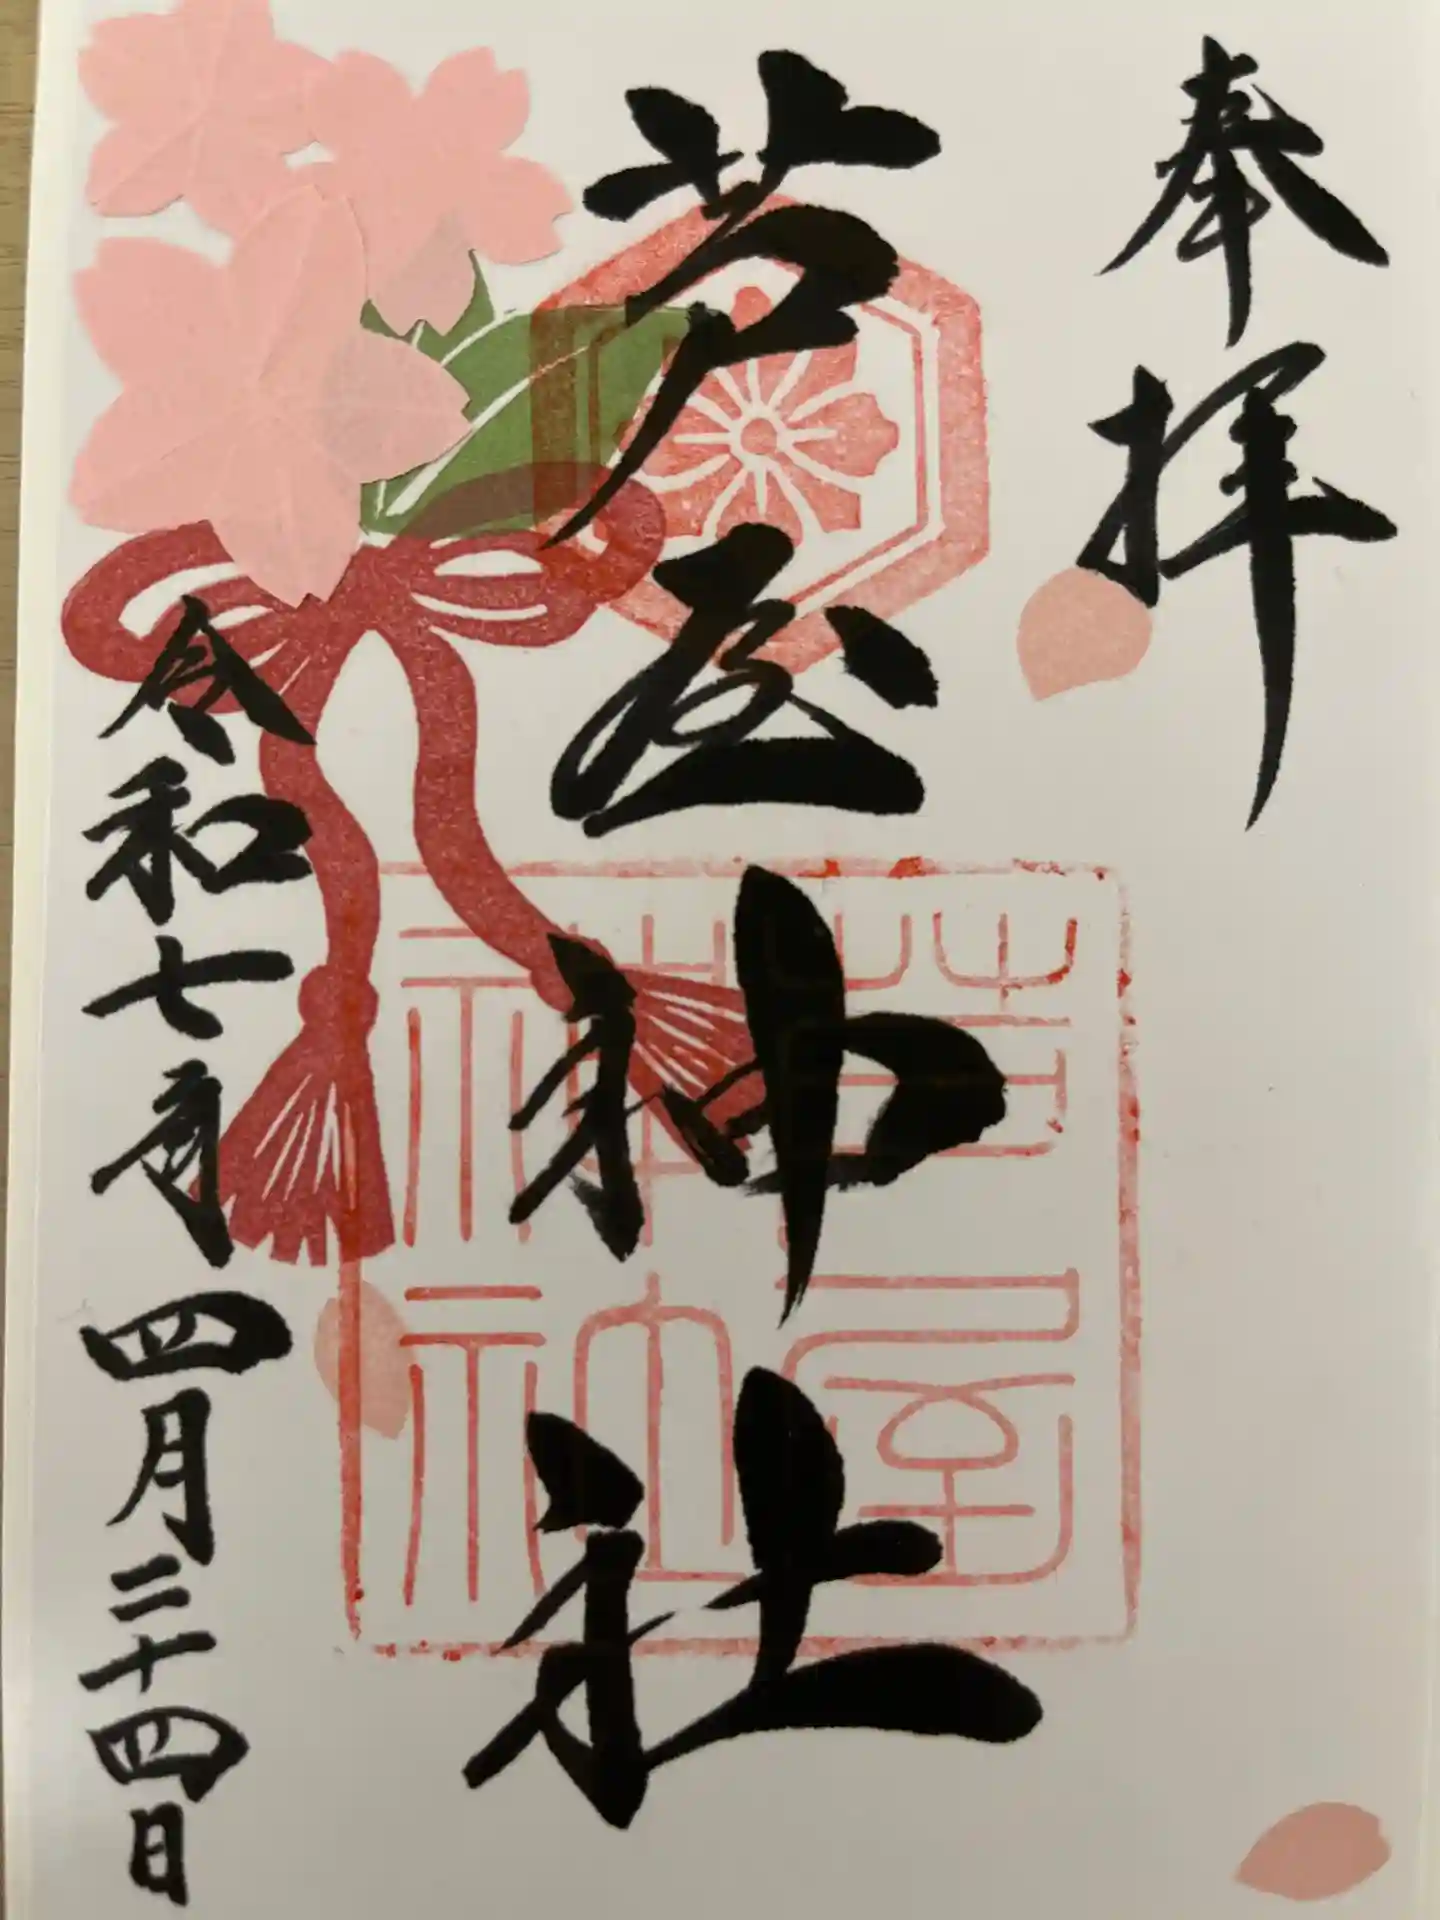 奉拝
芦屋神社
令和七年四月二十四日
芦屋
神社